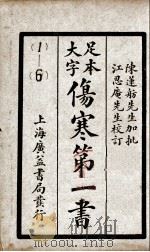 陳蓮舫先生加批
江忍庵先生校訂
足本
大字
傷寒第一書
(1—6)
上海廣益書局發行